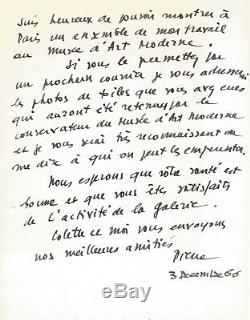 suis heureux de pouvoir montrer à
Paris un ensemble de mon travail
au Musée d'Art Moderne.
Si vous le permettez par
un prochain courrier je vous adresserai
les photos de toiles que vous avez eues
qui auront été retenues par le
conservateur du Musée d'Art Moderne
et je vous serai très reconnaissant de
me dire à qui on peut les emprunter.
Nous espérons que votre santé est
bonne et que vous êtes satisfaits
de l'activité de la galerie.
Colette et moi vous envoyons
nos meilleures amitiés
Pierre
3 Décembre 66